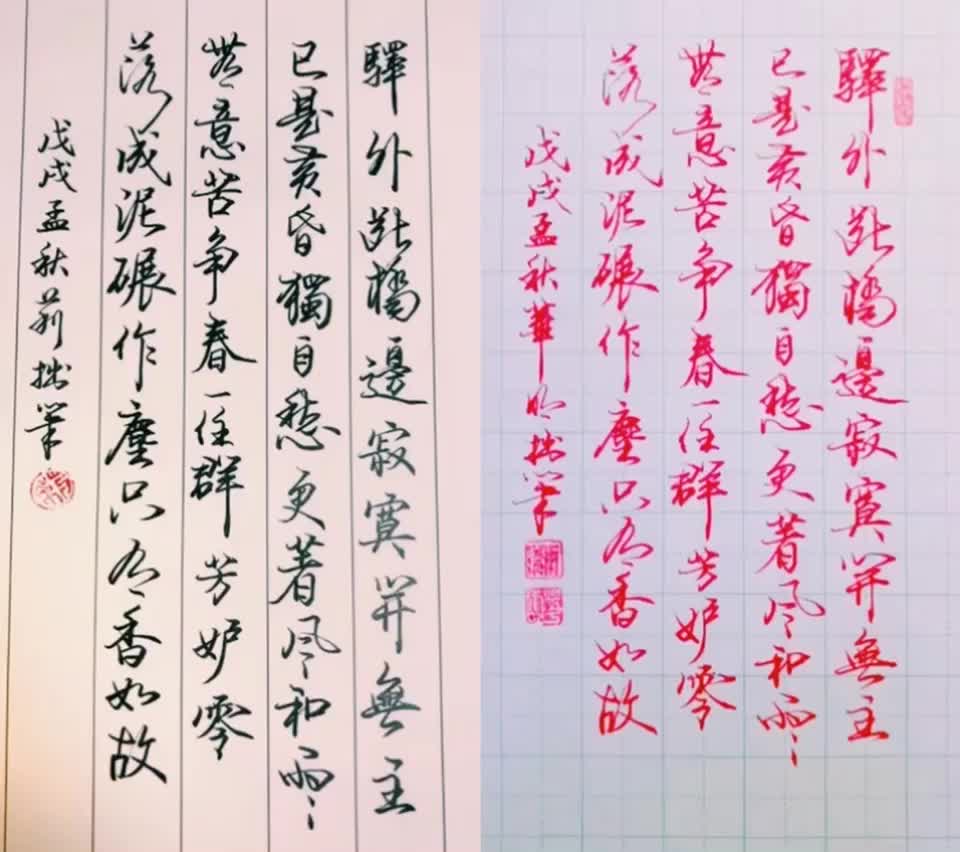 驛外斷橋邊寂寞開無主
已是黃昏獨自愁更著風和雨
無意苦爭春一任群芳妒零
落成泥碾作塵只有香如故
戊戌孟秋莉拙筆
驛外斷橋邊寂寞開無主
已是黃昏獨自愁更著風和雨
無意苦爭春一任群芳妒零
落成泥碾作塵只有香如故
戊戌孟秋華明拙筆